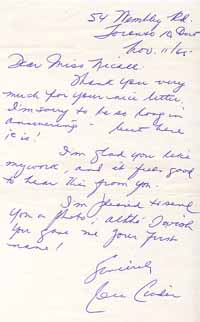 54 Wembley Rd.
Toronto 10, Ont
Nov. 11/65.
Dear Miss
Thank you very
much for your nice letter.
I'm sorry to be so long in
answering - but here
it is!
I'm glad you like
my work, and it feels good
to hear this from you.
I'm pleased to send
you a photo, altho I wish
you gave me your first
name!
Sincerely